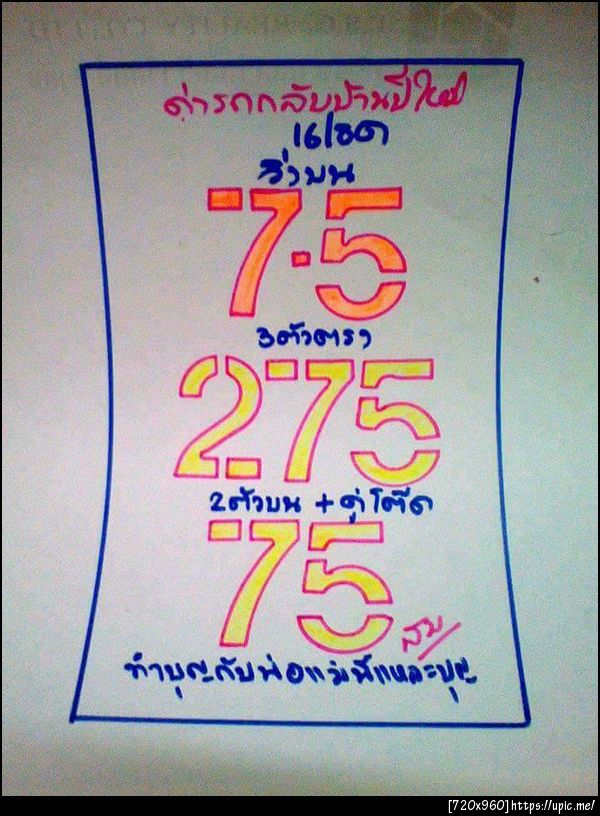 ค่ารถกลับบ้านปีใหม่
16/ธค
วิ่งบน
7-5
3ตัวตรง
275
2ตัวบน + คู่โต๊ด
75
ทำบุญกับพ่อแม่นี่แหละบุญ
[720x960]https://upic.me/